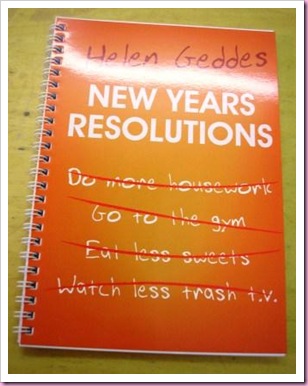 Helen Geddes
NEW YEARS
RESOLUTIONS
Do more housework
Go to the gym
Eat less sweets
Watch less trash t.v.